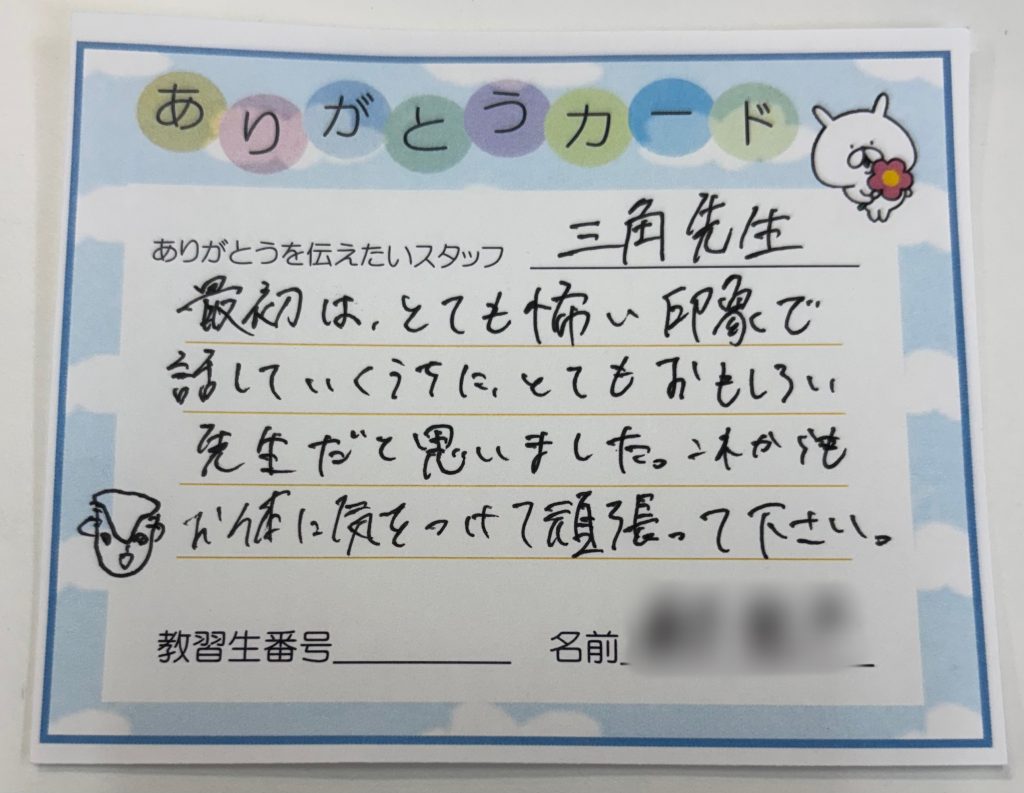 ありがとうカード
ありがとうを伝えたいスタッフ 三角先生
最初は、とても怖い印象で
話していくうちに、とてもおもしろい
先生だと思いました。これからも
お体に気をつけて頑張って下さい。
教習生番号
名前